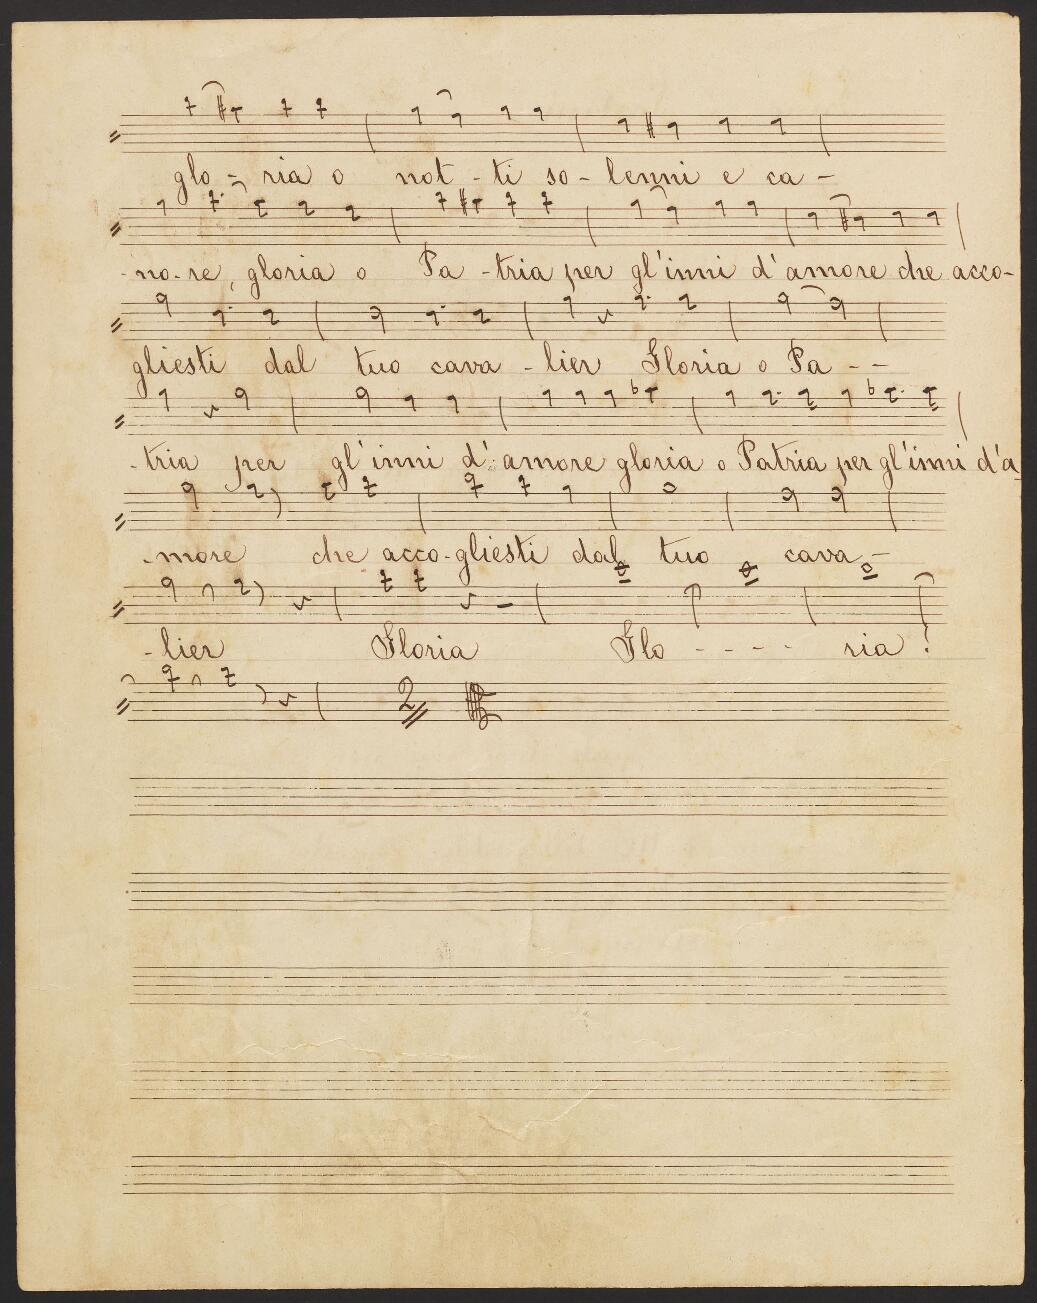 glo - ria o not - ti so - lenni e ca -
- no - re, gloria o Pa - tria per gl'inni d'amore che acco-
gliesti dal tuo cava - lier Gloria o Pa - -
- tria per gl'inni d'amore gloria o Patria per gl'inni d'a
- more che acco - gliesti dal tuo cava -
- lier Gloria Glo - - - - ria!